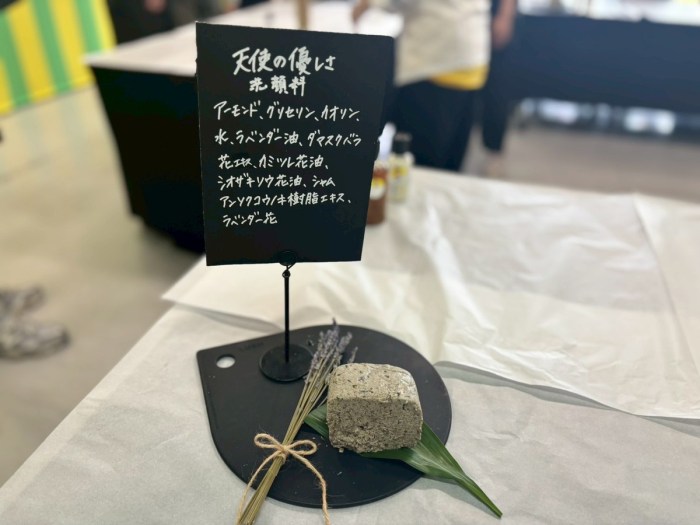 天使の優しさ
洗顔料
アーモンド、グリセリン、カオリン、
水、ラベンダー油、ダマスクバラ
花エキス、カミツレ花油、
シオザキソウ花油、シャム
アンソクコウノキ樹脂エキス、
ラベンダー花